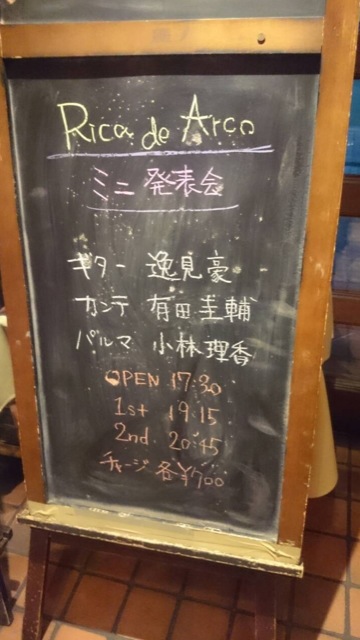 Rica de Arco
ミニ 発表会
ギター 逸見豪
カンテ 有田圭輔
パルマ 小林理香
OPEN 17:30
1st 19:15
2nd 20:45
チャージ 各¥700